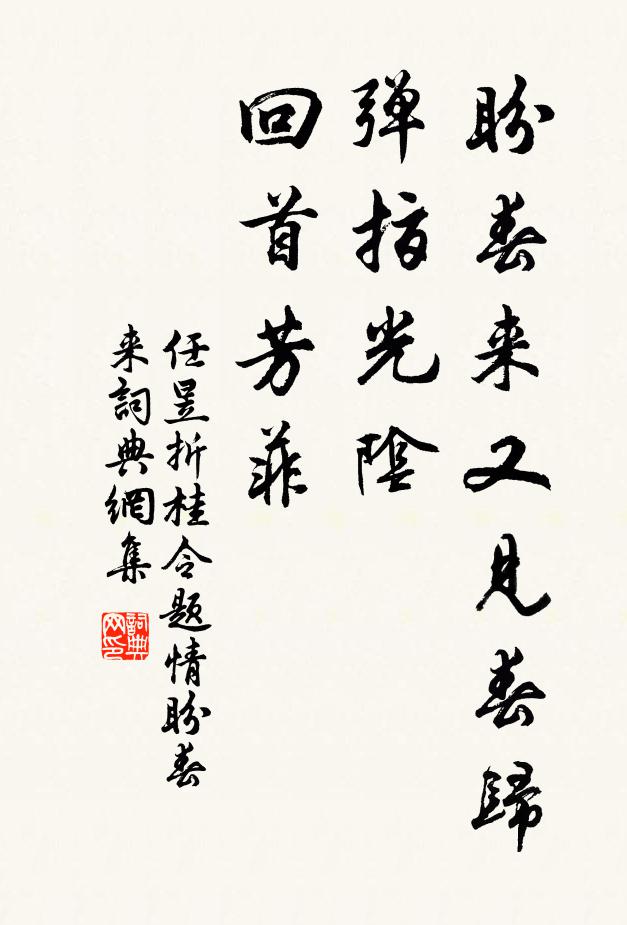 盼春来又見春歸
弹指光陰
回首芳菲
任昱折桂令题情盼春
来詞典網集
詞典网印